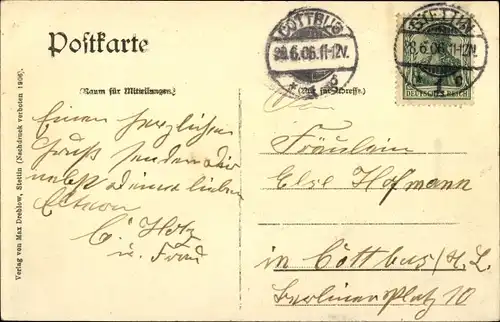 Postkarte
COTTBUS
29.6.06.11-12V.
STETTIN
28.6.06.11-12V.
DEUTSCHES REICH
(Raum für Mitteilungen)
(Nur für Adresse.)
Einen herzlichen
Gruß senden Dir
nebst deinen lieben
Eltern
C. Hotz
u. Frau
Fräulein
Else Hofmann
in Cottbus/N. L.
Berlinerplatz 10
Verlag von Max Dreblow, Stettin (Nachdruck verboten 1906)